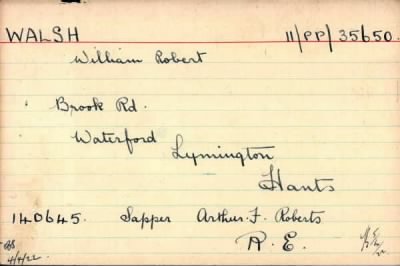 WALSH 11/PP/35650.
William Robert
Brook Rd.
Waterford
Lymington
Hants
140645. Sapper Arthur. F. Roberts
R. E.
4/4/22.